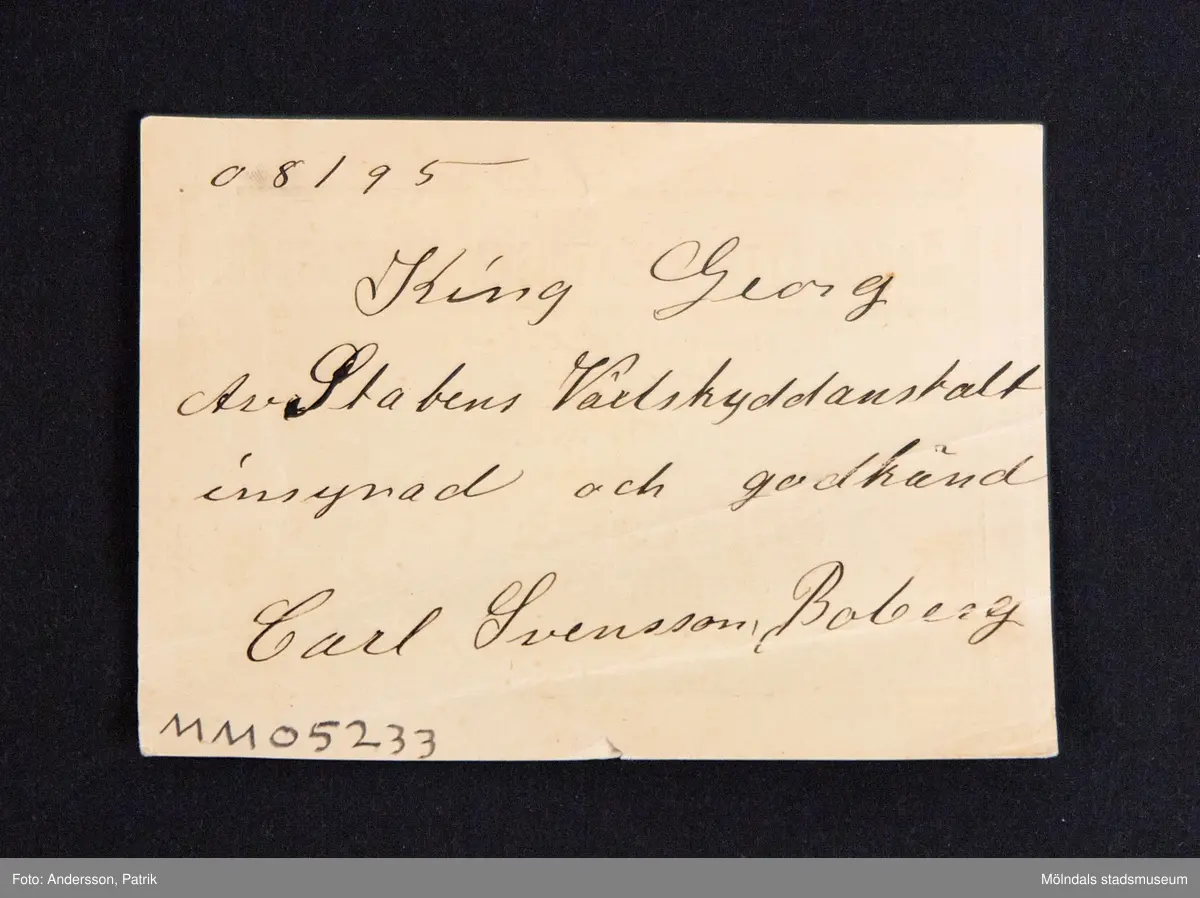 08195
King Georg
Av Statens Växtskyddanstalt
insynad och godkänd
Carl Svensson, Boberg
MM05233
Foto: Andersson, Patrik
Mölndals stadsmuseum